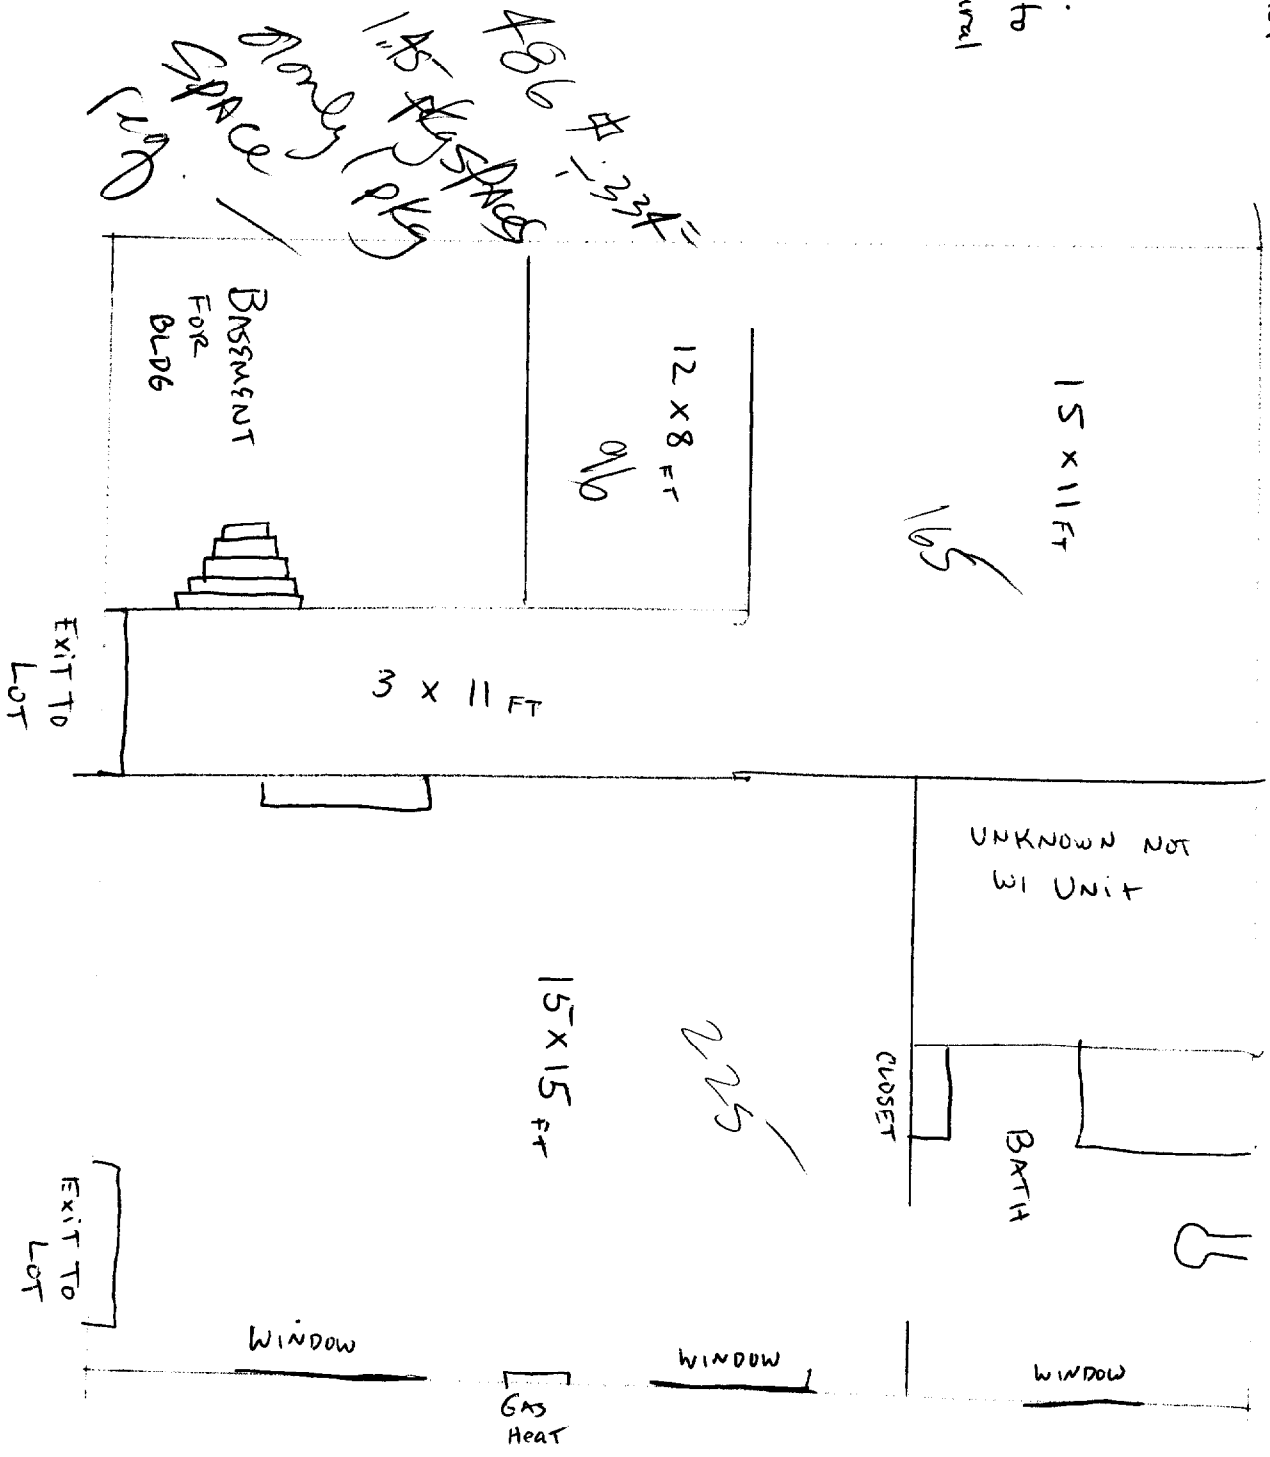 to
ural
486 ÷ 334 =
1.45 pkg spaces
only 1 pkg
space
req.
BASEMENT
FOR
BLDG
12 x 8 FT
96
15 x 11 FT
165
EXIT TO
LOT
3 x 11 FT
UNKNOWN NOT
W/ UNIT
15 x 15 FT
225
CLOSET
BATH
EXIT TO
LOT
WINDOW
WINDOW
WINDOW
GAS
HEAT